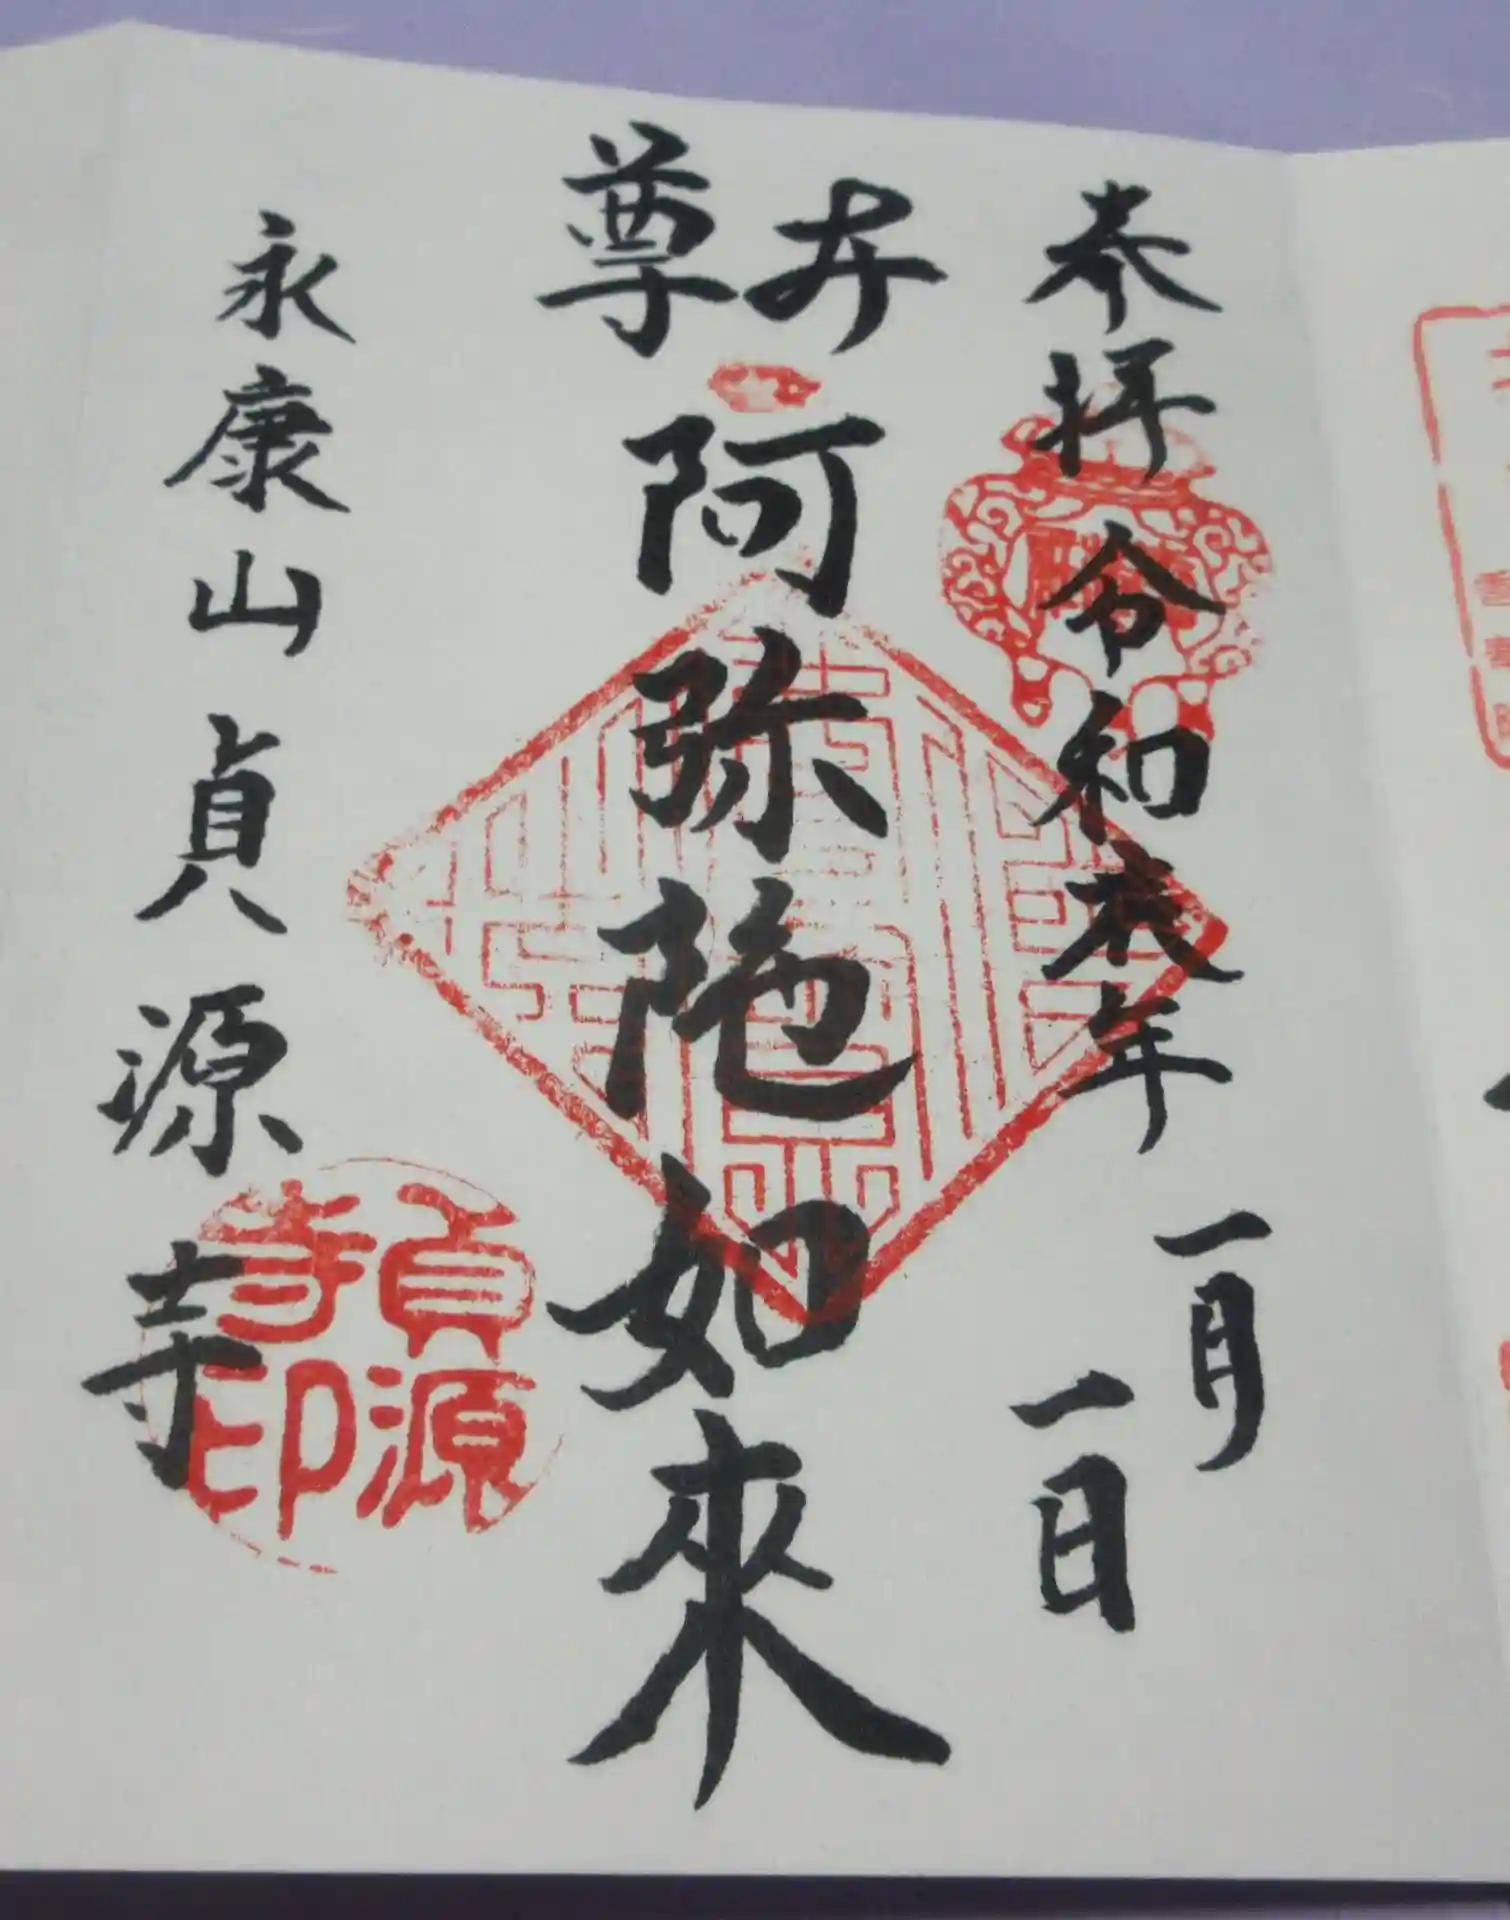 奉拝 令和弐年
一月
一日
本
尊
阿弥陀如來
永康山貞源寺
貞源
寺印